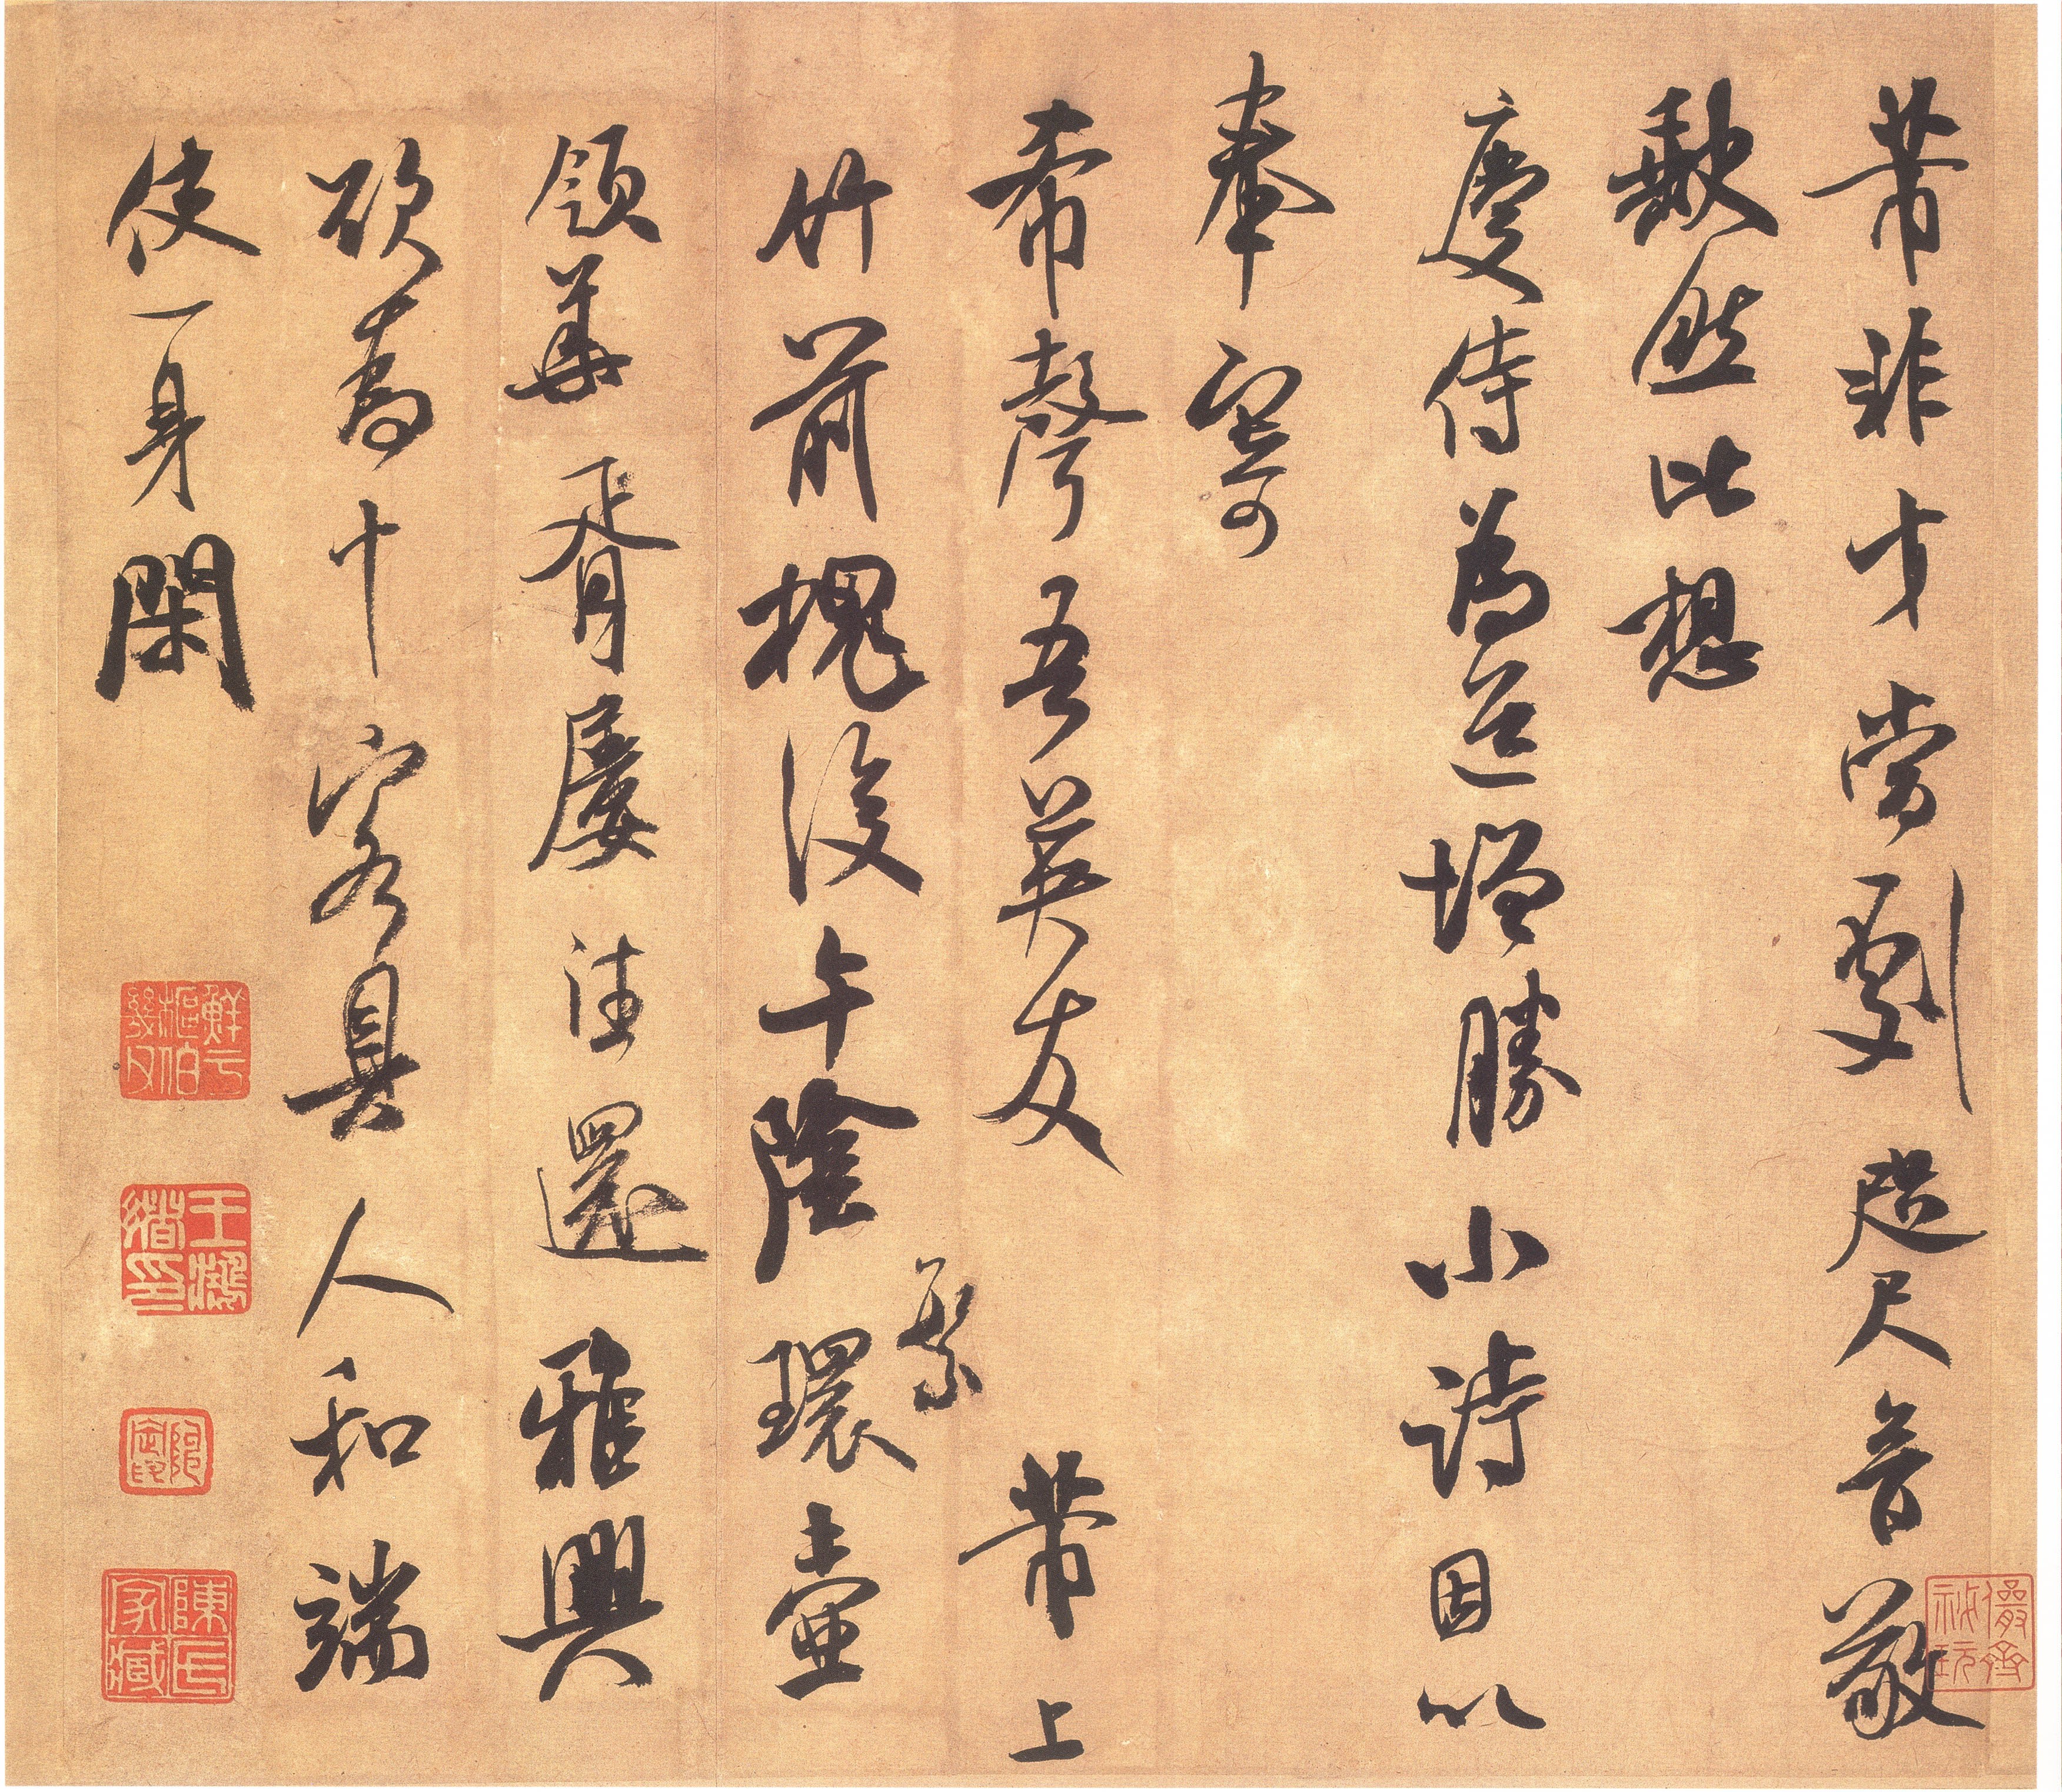 芾非才當劇咫尺音敬
缺然比想
慶侍為道增勝小詩因以
奉寄
希聲吾英友 芾上
繁
竹前槐後午陰環壺
領華胥屢往還雅興
欲為十客具人和端
使一身閑
鮮于樞伯幾父
王鴻緒印
陳氏家藏
儼齋秘玩